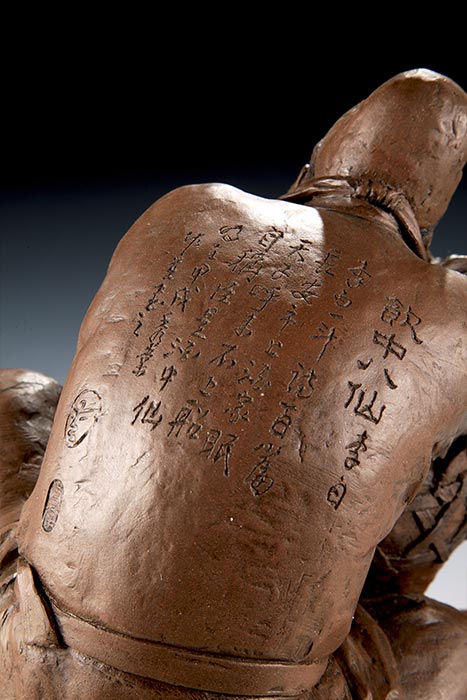 飲中八仙李白
李白一斗詩百篇
長安市上酒家眠
天子呼來不上船
自稱臣是酒中仙